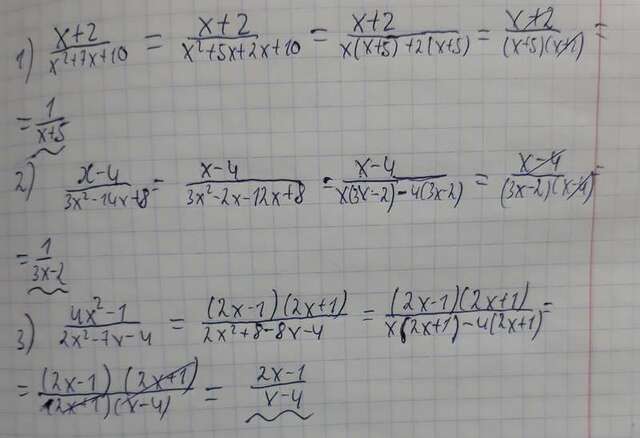 1) (x+2)/(x²+7x+10) = (x+2)/(x²+5x+2x+10) = (x+2)/(x(x+5)+2(x+5)) = (x+2)/((x+5)(x+2)) =
= 1/(x+5)
2) (x-4)/(3x²-14x+8) = (x-4)/(3x²-2x-12x+8) = (x-4)/(x(3x-2)-4(3x-2)) = (x-4)/((3x-2)(x-4)) =
= 1/(3x-2)
3) (4x²-1)/(2x²-7x-4) = ((2x-1)(2x+1))/(2x²+8-8x-4) = ((2x-1)(2x+1))/(x(2x+1)-4(2x+1)) =
= ((2x-1)(2x+1))/((2x+1)(x-4)) = (2x-1)/(x-4)